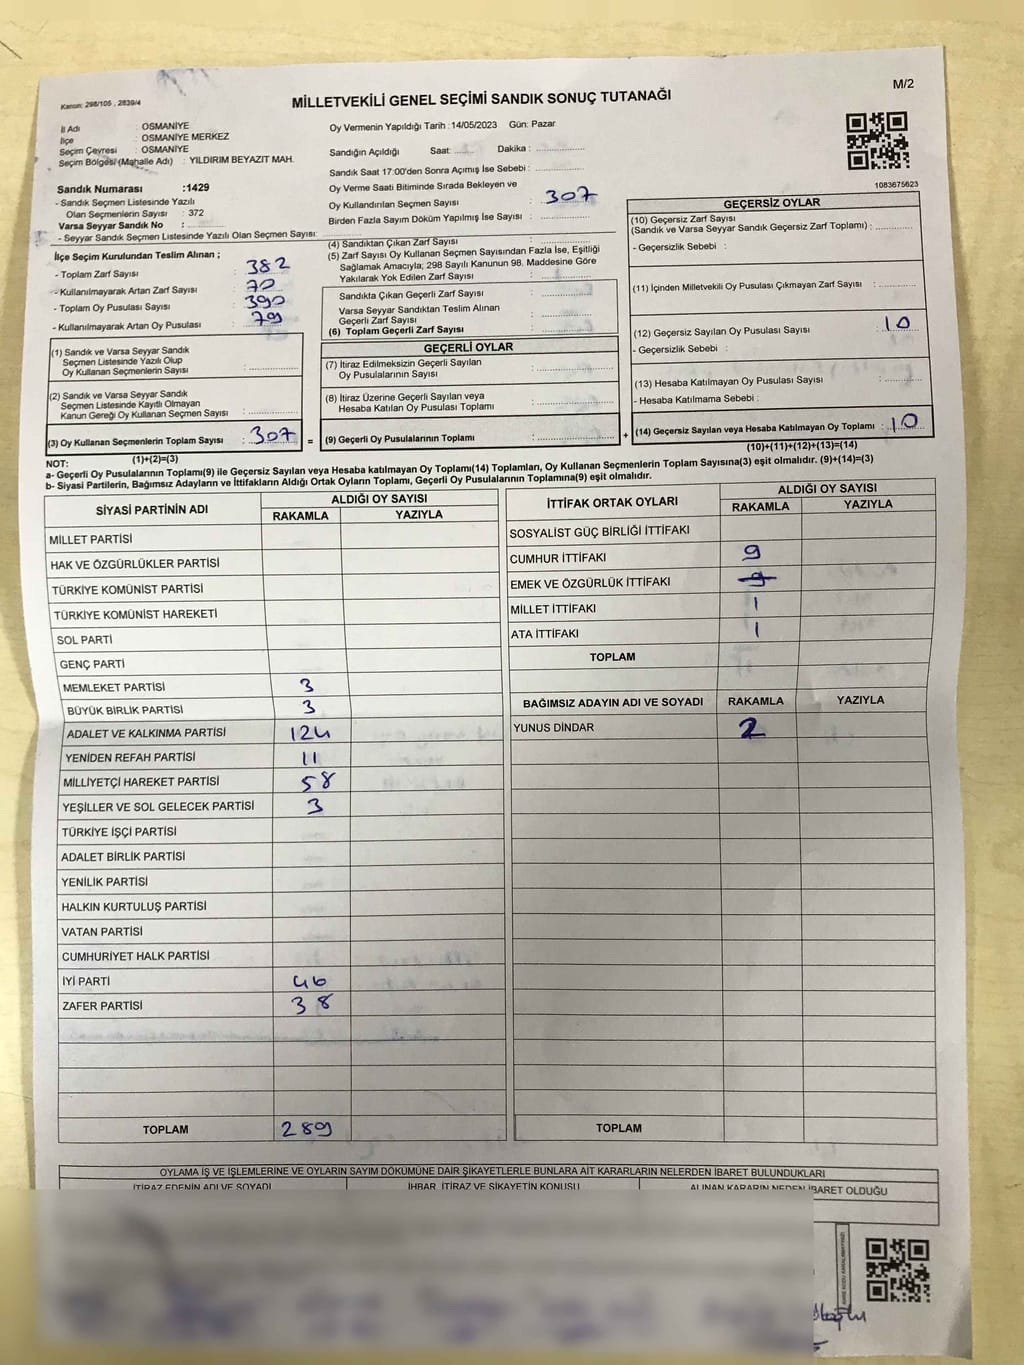 M/2
Kanun: 298/105 , 2839/4
MİLLETVEKİLİ GENEL SEÇİMİ SANDIK SONUÇ TUTANAĞI
İl Adı : OSMANİYE
İlçe : OSMANİYE MERKEZ
Seçim Çevresi : OSMANİYE
Seçim Bölgesi (Mahalle Adı) : YILDIRIM BEYAZIT MAH.
Sandık Numarası :1429
- Sandık Seçmen Listesinde Yazılı
Olan Seçmenlerin Sayısı : 372
Varsa Seyyar Sandık No :
- Seyyar Sandık Seçmen Listesinde Yazılı Olan Seçmen Sayısı:
Oy Vermenin Yapıldığı Tarih :14/05/2023 Gün: Pazar
Sandığın Açıldığı Saat: Dakika :
Sandık Saat 17:00'den Sonra Açımış İse Sebebi :
Oy Verme Saati Bitiminde Sırada Bekleyen ve
Oy Kullandırılan Seçmen Sayısı : 307
Birden Fazla Sayım Döküm Yapılmış İse Sayısı :
1083675623
İlçe Seçim Kurulundan Teslim Alınan ;
- Toplam Zarf Sayısı : 382
- Kullanılmayarak Artan Zarf Sayısı : 70
- Toplam Oy Pusulası Sayısı : 390
- Kullanılmayarak Artan Oy Pusulası : 79
(1) Sandık ve Varsa Seyyar Sandık
Seçmen Listesinde Yazılı Olup
Oy Kullanan Seçmenlerin Sayısı :
(2) Sandık ve Varsa Seyyar Sandık
Seçmen Listesinde Kayıtlı Olmayan
Kanun Gereği Oy Kullanan Seçmen Sayısı :
(3) Oy Kullanan Seçmenlerin Toplam Sayısı : 307 =
(1)+(2)=(3)
(4) Sandıktan Çıkan Zarf Sayısı :
(5) Zarf Sayısı Oy Kullanan Seçmen Sayısından Fazla İse, Eşitliği
Sağlamak Amacıyla, 298 Sayılı Kanunun 98. Maddesine Göre
Yakılarak Yok Edilen Zarf Sayısı :
Sandıkta Çıkan Geçerli Zarf Sayısı :
Varsa Seyyar Sandıktan Teslim Alınan
Geçerli Zarf Sayısı :
(6) Toplam Geçerli Zarf Sayısı :
GEÇERLİ OYLAR
(7) İtiraz Edilmeksizin Geçerli Sayılan
Oy Pusulalarının Sayısı :
(8) İtiraz Üzerine Geçerli Sayılan veya
Hesaba Katılan Oy Pusulası Toplamı :
(9) Geçerli Oy Pusulalarının Toplamı : +
GEÇERSİZ OYLAR
(10) Geçersiz Zarf Sayısı
(Sandık ve Varsa Seyyar Sandık Geçersiz Zarf Toplamı) :
- Geçersizlik Sebebi :
(11) İçinden Milletvekili Oy Pusulası Çıkmayan Zarf Sayısı :
(12) Geçersiz Sayılan Oy Pusulası Sayısı : 10
- Geçersizlik Sebebi :
(13) Hesaba Katılmayan Oy Pusulası Sayısı :
- Hesaba Katılmama Sebebi :
(14) Geçersiz Sayılan veya Hesaba Katılmayan Oy Toplamı : 10
(10)+(11)+(12)+(13)=(14)
NOT:
a- Geçerli Oy Pusulalarının Toplamı(9) ile Geçersiz Sayılan veya Hesaba katılmayan Oy Toplamı(14) Toplamları, Oy Kullanan Seçmenlerin Toplam Sayısına(3) eşit olmalıdır. (9)+(14)=(3)
b- Siyasi Partilerin, Bağımsız Adayların ve İttifakların Aldığı Ortak Oyların Toplamı, Geçerli Oy Pusulalarının Toplamına(9) eşit olmalıdır.
SİYASİ PARTİNİN ADI ALDIĞI OY SAYISI
RAKAMLA YAZIYLA
MİLLET PARTİSİ
HAK VE ÖZGÜRLÜKLER PARTİSİ
TÜRKİYE KOMÜNİST PARTİSİ
TÜRKİYE KOMÜNİST HAREKETİ
SOL PARTİ
GENÇ PARTİ
MEMLEKET PARTİSİ 3
BÜYÜK BİRLİK PARTİSİ 3
ADALET VE KALKINMA PARTİSİ 124
YENİDEN REFAH PARTİSİ 11
MİLLİYETÇİ HAREKET PARTİSİ 58
YEŞİLLER VE SOL GELECEK PARTİSİ 3
TÜRKİYE İŞÇİ PARTİSİ
ADALET BİRLİK PARTİSİ
YENİLİK PARTİSİ
HALKIN KURTULUŞ PARTİSİ
VATAN PARTİSİ
CUMHURİYET HALK PARTİSİ
İYİ PARTİ 46
ZAFER PARTİSİ 38
TOPLAM 289
İTTİFAK ORTAK OYLARI ALDIĞI OY SAYISI
RAKAMLA YAZIYLA
SOSYALİST GÜÇ BİRLİĞİ İTTİFAKI
CUMHUR İTTİFAKI 9
EMEK VE ÖZGÜRLÜK İTTİFAKI 9
MİLLET İTTİFAKI 1
ATA İTTİFAKI 1
TOPLAM
BAĞIMSIZ ADAYIN ADI VE SOYADI RAKAMLA YAZIYLA
YUNUS DİNDAR 2
TOPLAM
OYLAMA İŞ VE İŞLEMLERİNE VE OYLARIN SAYIM DÖKÜMÜNE DAİR ŞİKAYETLERLE BUNLARA AİT KARARLARIN NELERDEN İBARET BULUNDUKLARI
İTİRAZ EDENİN ADI VE SOYADI İHBAR, İTİRAZ VE ŞİKAYETİN KONUSU ALINAN KARARIN NEDEN İBARET OLDUĞU